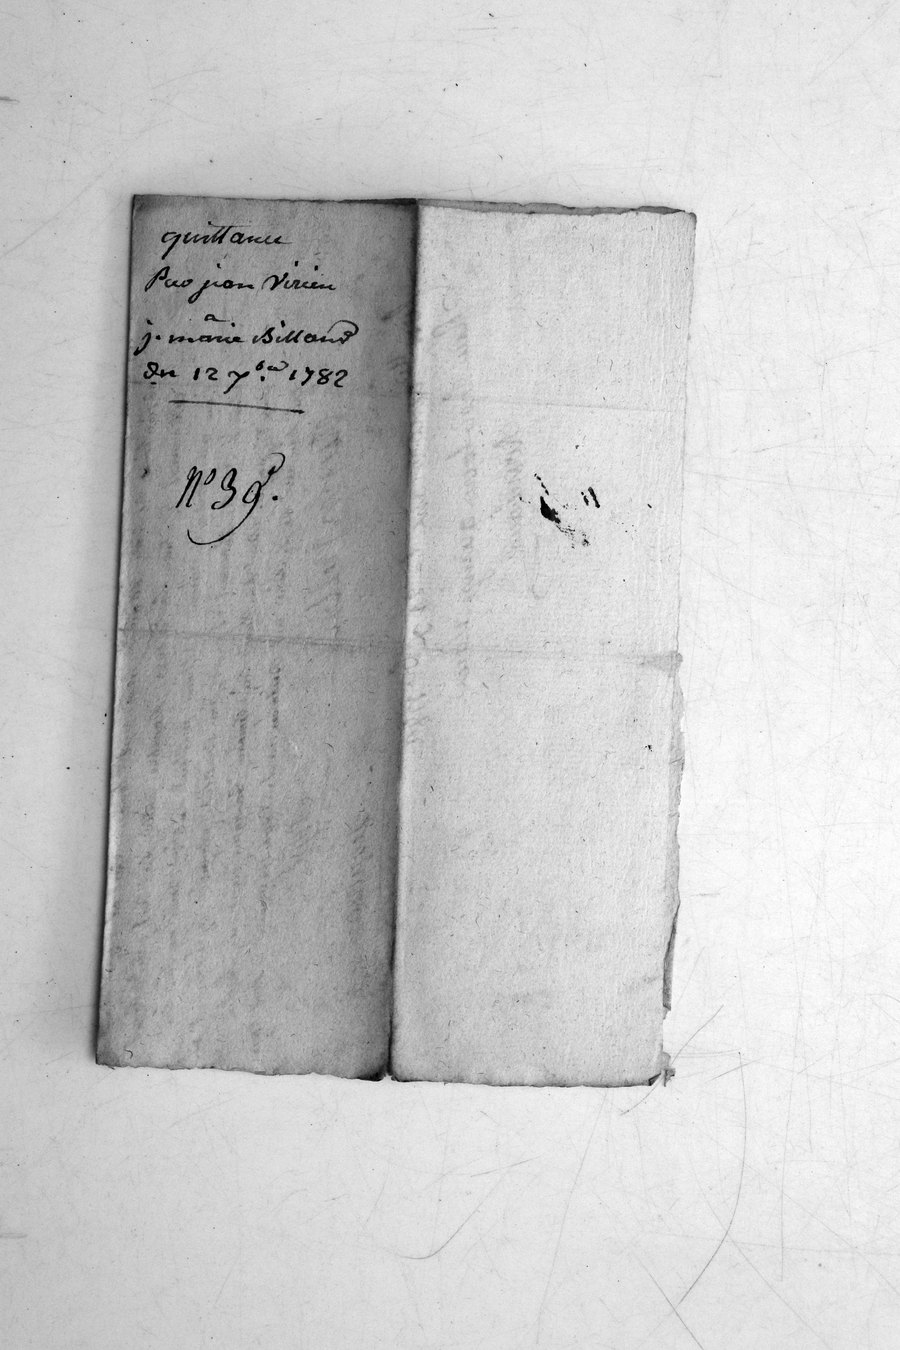 quittance
Par jean Virieu
a
j. marie Billand
du 12 7bre 1782
N° 39.